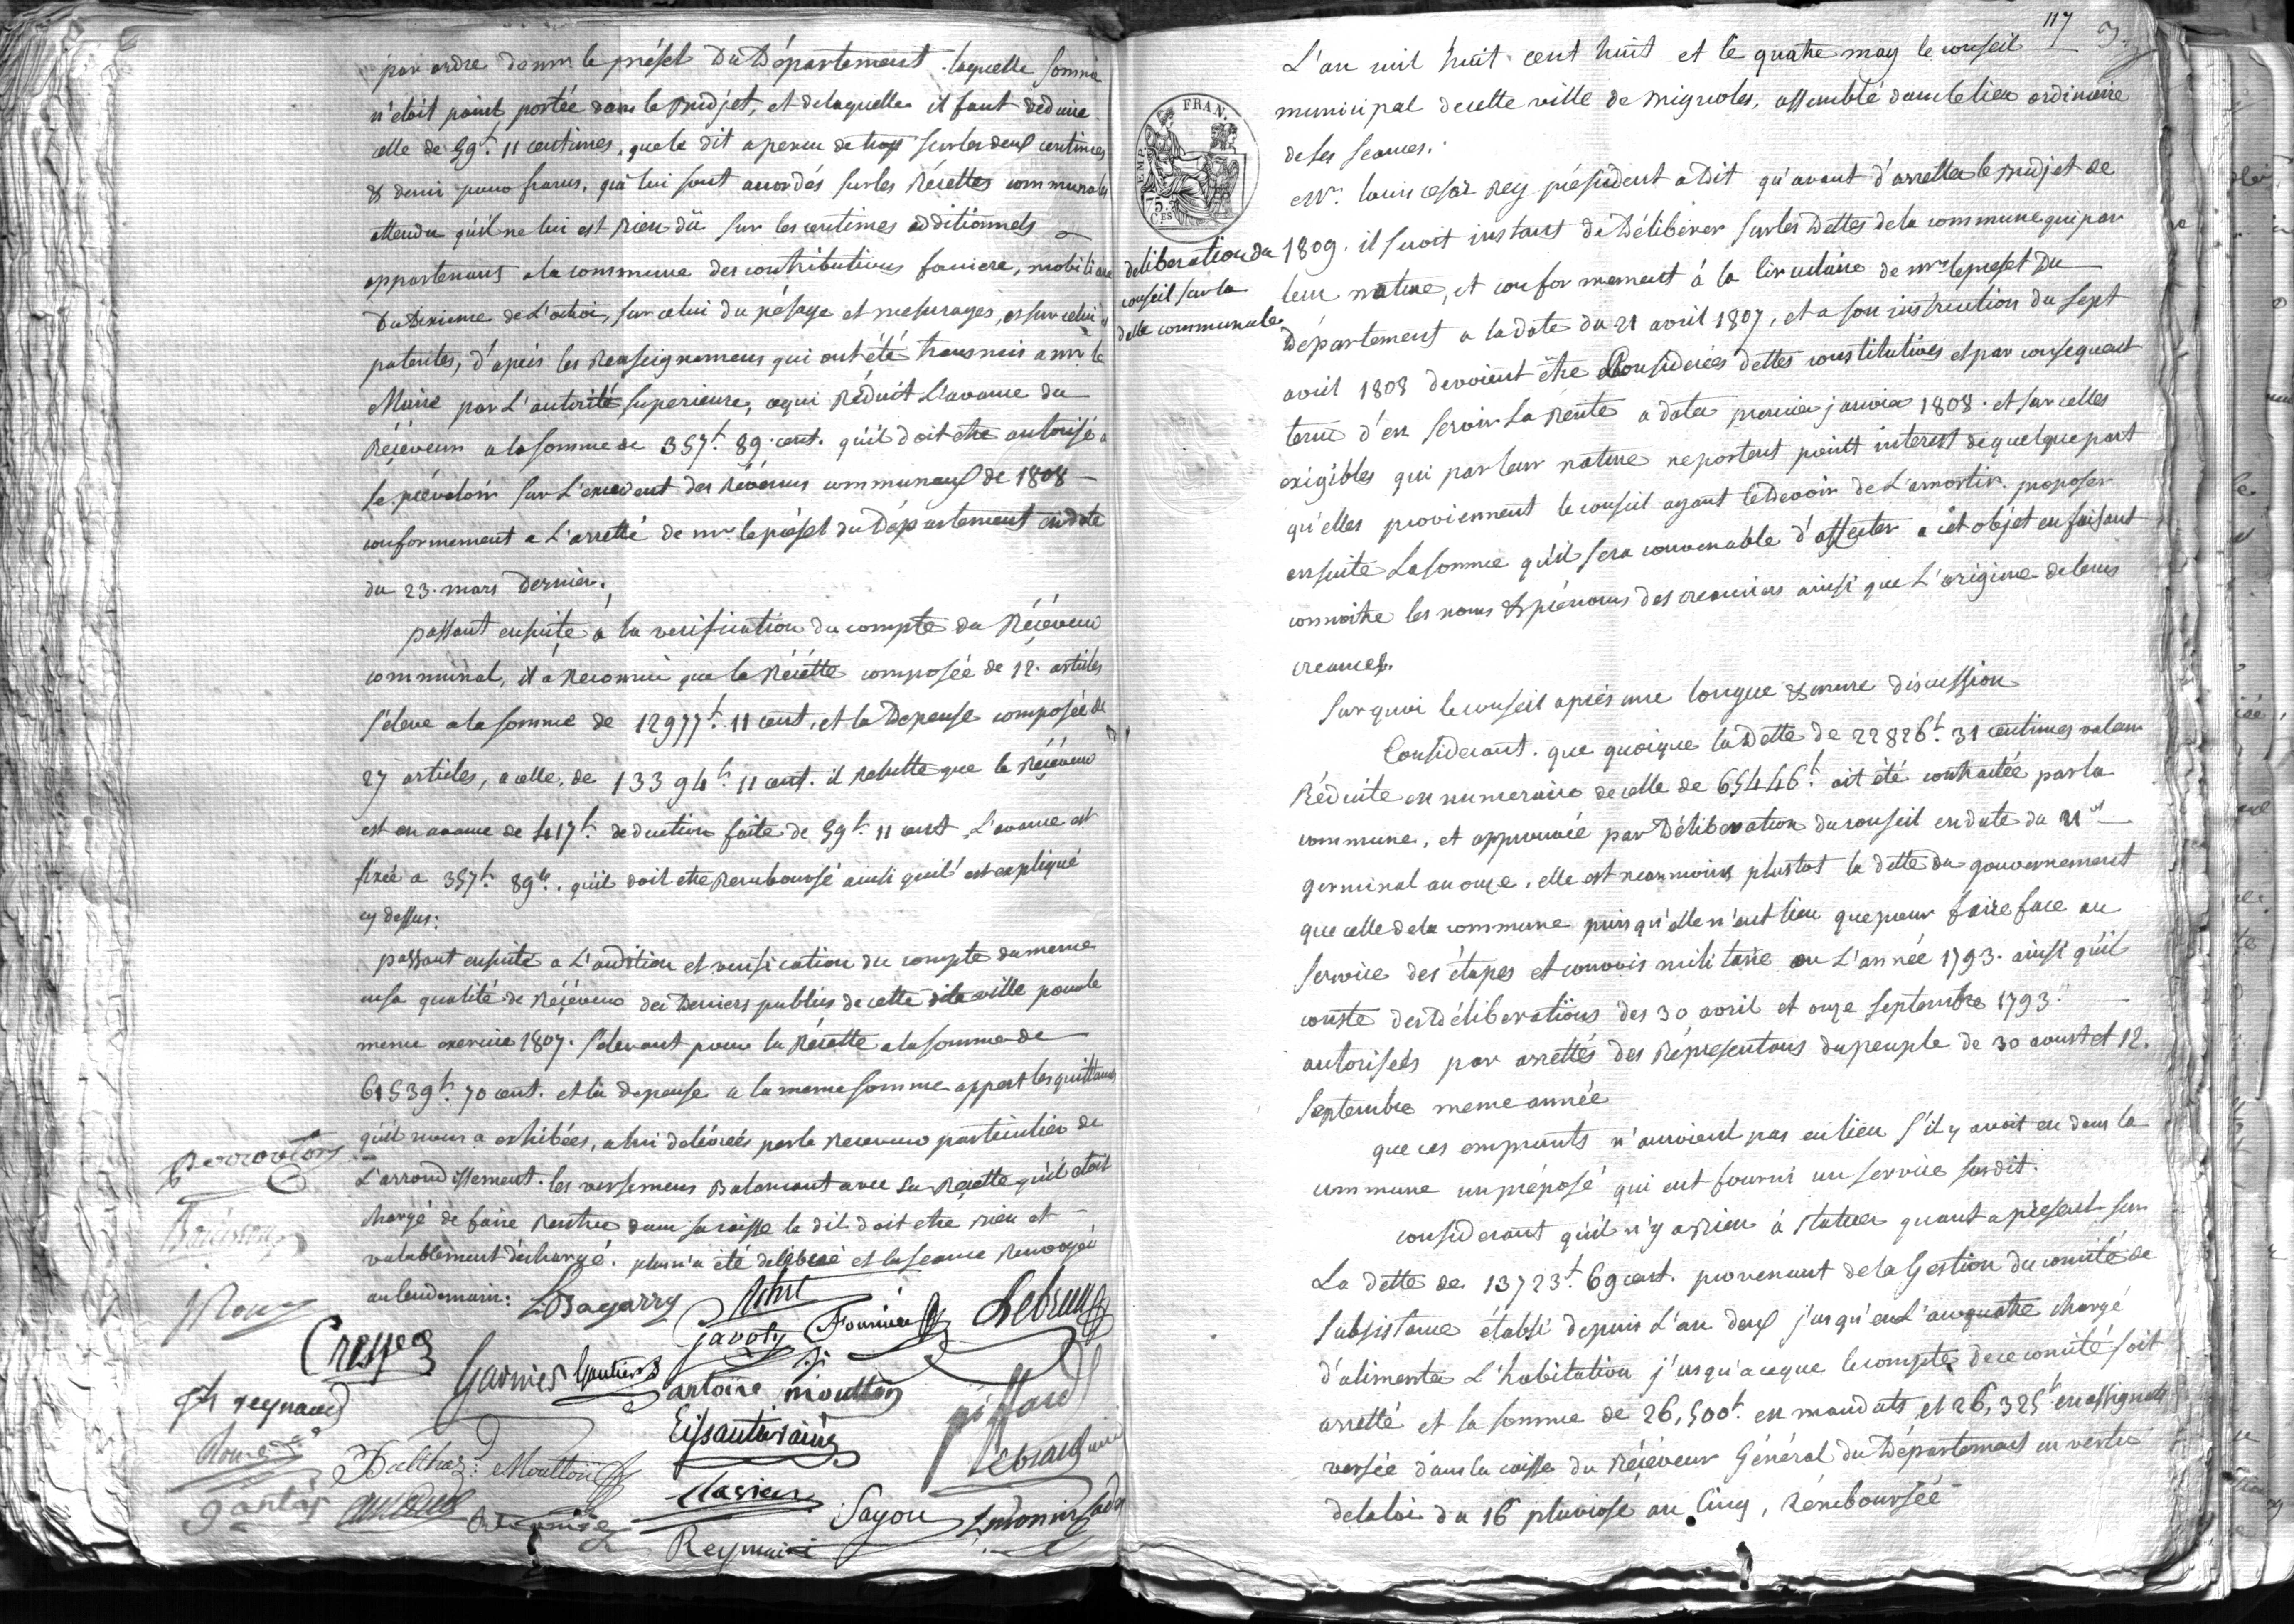 par ordre de mr. le préfet Du Département. laquelle somme
n'étoit point portée dans le Budjet, et de laquelle il faut déduire
celle de 59f. 11 centimes, que le dit a perçu de trop sur les deux centimes
& demi pour francs, qui lui sont accordés sur les Récettes communales
attendu qu'il ne lui est rien dû sur les centimes additionnels
appartenants a la commune des contributions fonciere, mobiliaire
Du Dixieme de L'octroi, sur celui du pésage et mesurages, et sur celui
patentes, d'apres les Renseignemens qui ont été transmis a mr. le
Maire par L'autorité superieure, ce qui Réduit L'avance du
Réçeveur a la somme de 357f. 89 cent. qu'il doit etre autorisé a
se prévaloir sur L'excedent des Révenus communaux de 1808
conformement a L'arretté de mr. le préfet du Département en date
du 23. mars Dernier.
passant ensuite à la verification du compte du Réçeveur
communal, il a Reconnu que la Récette composée de 12. articles
s'eleve a la somme de 12977f. 11 cent. et la Depense composée de
27 articles, a celle, de 13394f. 11 cent. il Resulte que le Réçeveur
est en avance de 417f. deduction faite de 59f. 11 cent. L'avance est
fixée a 357f. 89c. qu'il doit etre Remboursé ainsi qu'il est expliqué
cy dessus:
passant ensuite a L'audition et verification du compte du meme
en sa qualité de Réçeveur des Deniers publics de cette dite ville pour le
meme exercice 1807. s'elevant pour la Récette a la somme de
61539f. 70 cent. et la depense a la meme somme appert les quittances
qu'il nous a exhibées, a lui delivrées par le Receveur particulier de
L'arrondissement. les versemens Balancant avec la Reçette qu'il etoit
chargé de faire Rentrer dans sa caisse le dit doit etre bien et
valablement déchargé. plus n'a été deliberé et la seance Renvoyée
au lendemain:
LBagarry
Javoly
Fournier
Lebrun
Crespe
Garnier
Gautier
antoine moutton
piffard
gh reynaud
Eissautier ainé
Balthaz: Moutton
gantés
Masier
Sayou
Reynaud
117
L'an mil huit cent huit et le quatre may le conseil
municipal de cette ville de Brignoles, assemblé dans le lieu ordinaire
de ses seances.
FRAN.
EMP.
75.
C.ES
deliberation du
conseil sur la
dette communale
Mr. louis cesar Rey président a Dit qu'avant d'arretter le Budjet de
1809. il seroit instant de Délibérer sur les Dettes de la commune qui par
leur nature, et conformement à la circulaire de mr. le prefet Du
Département a la date du 21 avril 1807, et a son instruction du sept
avril 1808 devoient être Considerées dettes constitutives et par consequent
tenu d'en servir La Rente a dater premier janvier 1808. et sur celles
exigibles qui par leur nature ne portent point interest de quelque part
qu'elles proviennent le conseil ayant le Devoir de L'amortir. proposer
ensuite La somme qu'il sera convenable d'affecter a cet objet en faisant
connoitre les noms & prénoms des creanciers ainsi que L'origine de leurs
creances.
Sur quoi le conseil apres une longue & mure discussion
Considerant. que quoique la Dette de 22826f. 31 centimes valeur
Réduite en numeraire de celle de 65446f. ait été contractée par la
commune, et approuvée par Délibération du conseil en date du 21
germinal an onze, elle est neanmoins plustot la dette du gouvernement
que celle de la commune puisqu'elle n'eut lieu que pour faire face au
service des étapes et convois militaire en L'année 1793. ainsi qu'il
conste des Délibérations des 30 avril et onze septembre 1793.
autorisées par arrettés des Répresentans du peuple de 30 aoust et 12.
Septembre meme année
que ces emprunts n'auroient pas eu lieu s'il y avoit eu dans la
commune un préposé qui eut fourni au service susdit.
considerant qu'il n'y a Rien à statuer quant a présent sur
La dette de 13723f. 69 cent. provenant de la Gestion du comité de
Subsistance établi depuis L'an deux jusqu'en L'an quatre chargé
d'alimenter L'habitation jusqu'a ce que le compte de ce comité soit
arretté et la somme de 26,500f. en mandats et 26,325f en assignats
versée dans la caisse du Réçeveur Général du Département en vertu
de la loi du 16 pluviose an Cinq, Rémboursée